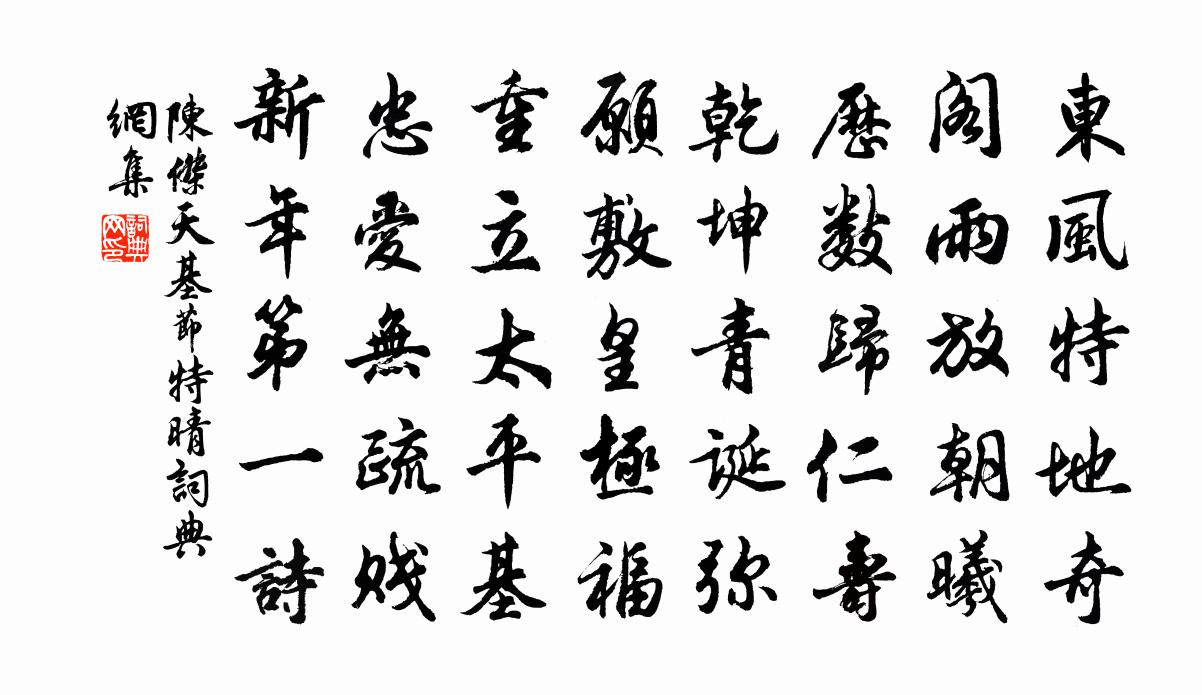 東風特地奇
閣雨放朝曦
曆數歸仁壽
乾坤青誕彌
願敷皇極福
重立太平基
忠愛無疏賤
新年第一詩
陳傑天基節特晴詞典
網集
詞典
网印